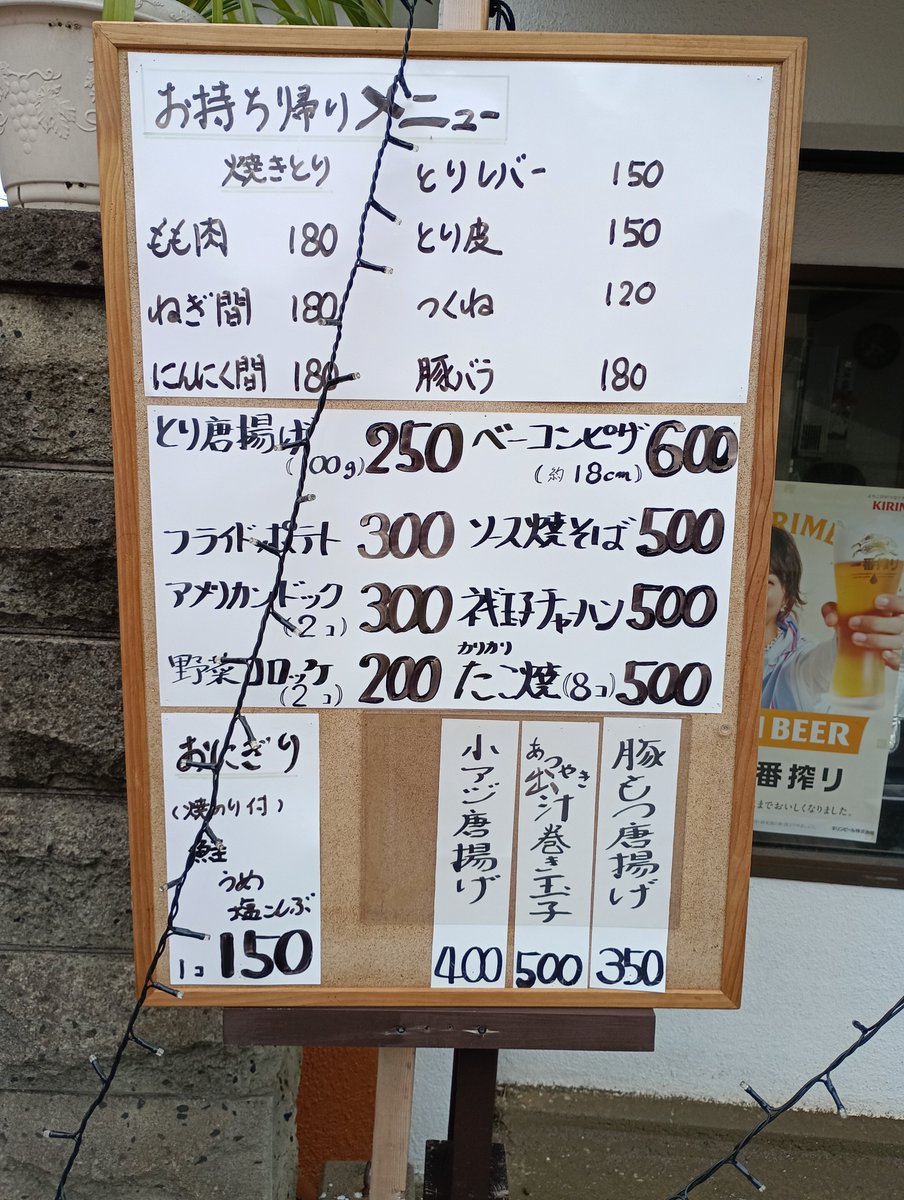 お持ち帰りメニュー
焼きとり
もも肉 180
ねぎ間 180
にんにく間 180
とりレバー 150
とり皮 150
つくね 120
豚バラ 180
とり唐揚げ 250
(100g)
フライドポテト 300
アメリカンドック 300
(2コ)
野菜コロッケ 200
(2コ)
ベーコンピザ 600
(約18cm)
ソース焼そば 500
ネギ玉子チャーハン 500
カリカリ
たこ焼(8コ) 500
おにぎり
(焼のり付)
鮭
うめ
塩こんぶ
1コ 150
小アジ唐揚げ
400
あつやき
出汁巻き玉子
500
豚もつ唐揚げ
350
KIRIN
BEER
番搾り
までおいしくなりました。
キリンビール株式会社